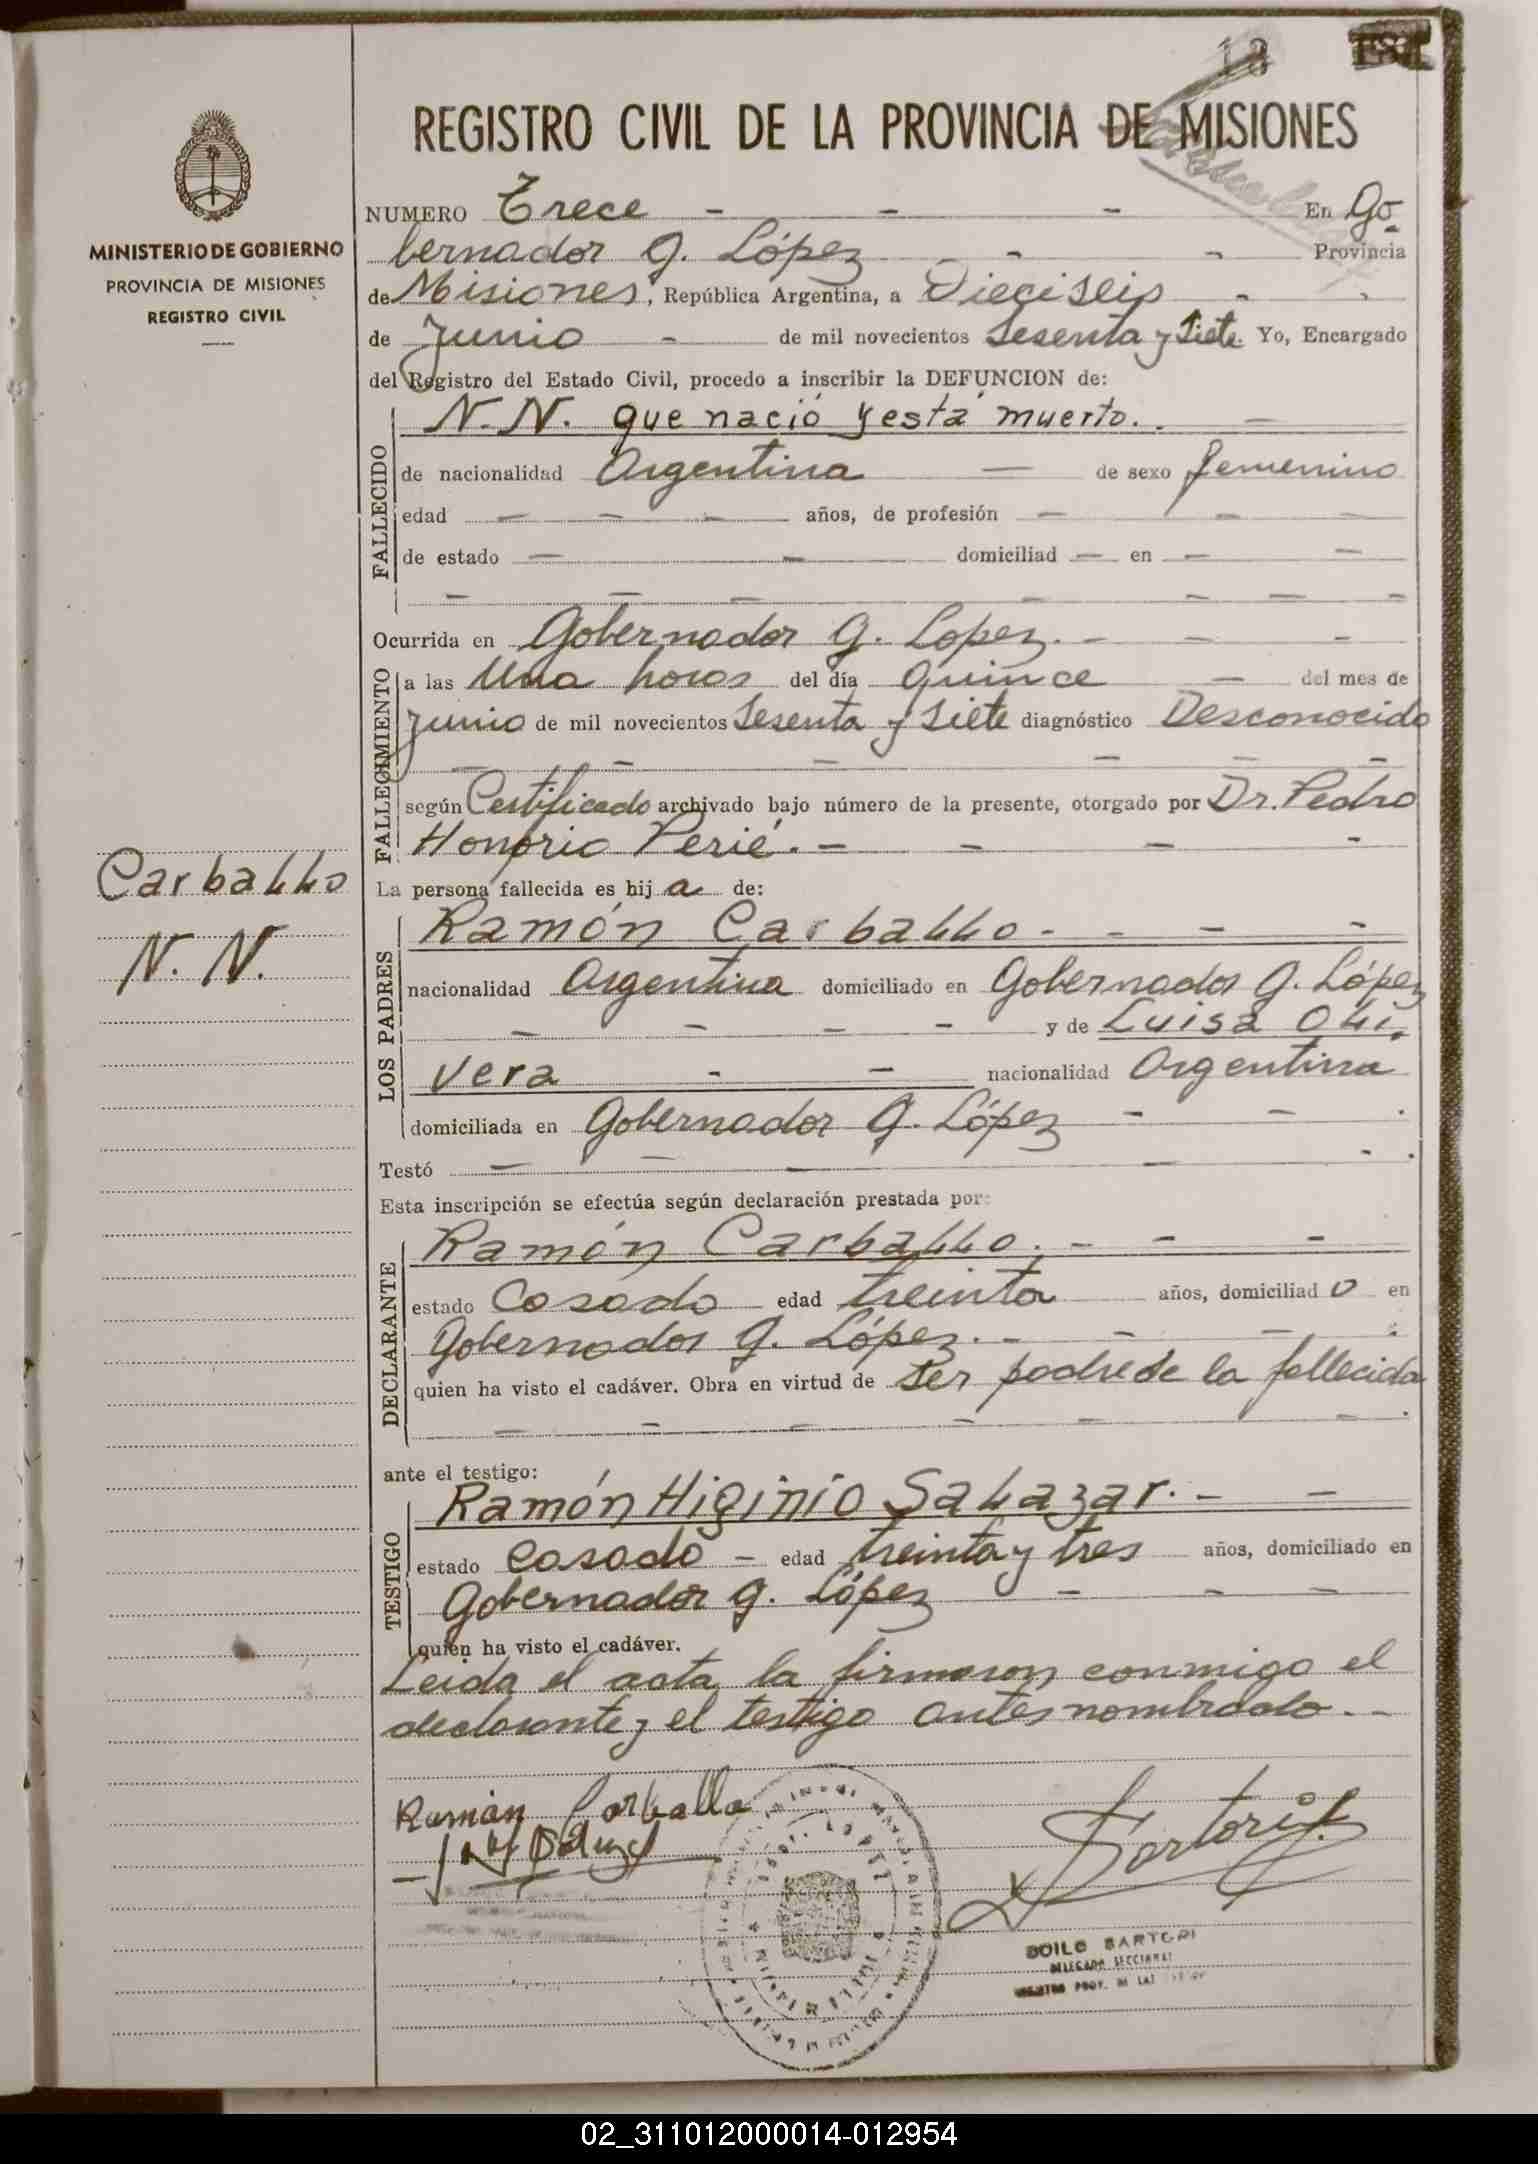 13
REGISTRO CIVIL DE LA PROVINCIA DE MISIONES
MINISTERIO DE GOBIERNO
PROVINCIA DE MISIONES
REGISTRO CIVIL
NUMERO Trece - - - En Go
bernador G. López - - Provincia
de Misiones, República Argentina, a Dieciseis - -
de Junio - de mil novecientos Sesenta y Siete. Yo, Encargado
del Registro del Estado Civil, procedo a inscribir la DEFUNCION de:
FALLECIDO
N.N. que nació y está muerto. . -
de nacionalidad Argentina - de sexo femenino
edad - - - años, de profesión - - -
de estado - - domiciliad - en - -
- - - - - - -
Ocurrida en Gobernador G. Lopez. - - -
FALLECIMIENTO
a las Una horas del día Quince - del mes de
Junio de mil novecientos Sesenta y Siete diagnóstico Desconocido
- - - - -
según Certificado archivado bajo número de la presente, otorgado por Dr. Pedro
Honorio Perié. - - - -
Carballo
N. N.
La persona fallecida es hij a de:
LOS PADRES
Ramón Carballo - - - -
nacionalidad Argentina domiciliado en Gobernador G. López
- - - - y de Luisa Oli.
vera - - nacionalidad Argentina
domiciliada en Gobernador G. López - - .
Testó - - - - - .
Esta inscripción se efectúa según declaración prestada por:
DECLARANTE
Ramón Carballo. - - -
estado Casado edad treinta años, domiciliad o en
Gobernador G. López. - - - .
quien ha visto el cadáver. Obra en virtud de Ser padre de la fallecida
- - - - - - .
ante el testigo:
TESTIGO
Ramón Higinio Salazar. - -
estado Casado - edad treinta y tres años, domiciliado en
Gobernador G. López - - -
quien ha visto el cadáver.
Leida el acta la firmaron conmigo el
declarante y el testigo antes nombrado. -
Ramón Carballo
Sartori
SARTORI
DELEGADO SECCIONAL
02_311012000014-012954